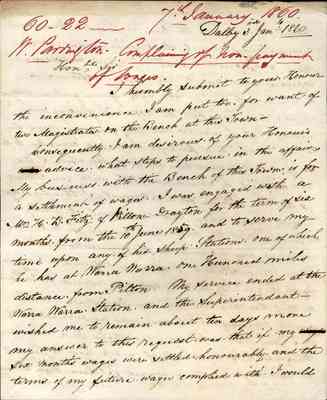 7th January 1860
60-22
Dalby 3rd Jany 1860
W. Parrington. Complaining of Non-payment
of Wages.
Honble Sir
I humbly submit to your Honour
the inconvenience I am put to, for want of
two Magistrates on the Bench at this Town-
Consequently I am desirous of your Honours
advice. what steps to pursue in the affair
My business with the Bench of this Town, is for
a settlement of wages. I was engaged with a
Mr H. B. Fitz of Pilton Drayton for the term of six
months, from the 10th June 1859, and to serve my
time upon any of his Sheep Stations. one of which
he has at Warra Warra. one Hundred miles
distance from Pilton. My service ended at the
Warra Warra Station. and the Superintendant-
wished me to remain about ten days more
my answer to this request was that if my
six months wages were settled honourably and the
terms of my future wage complied with I would